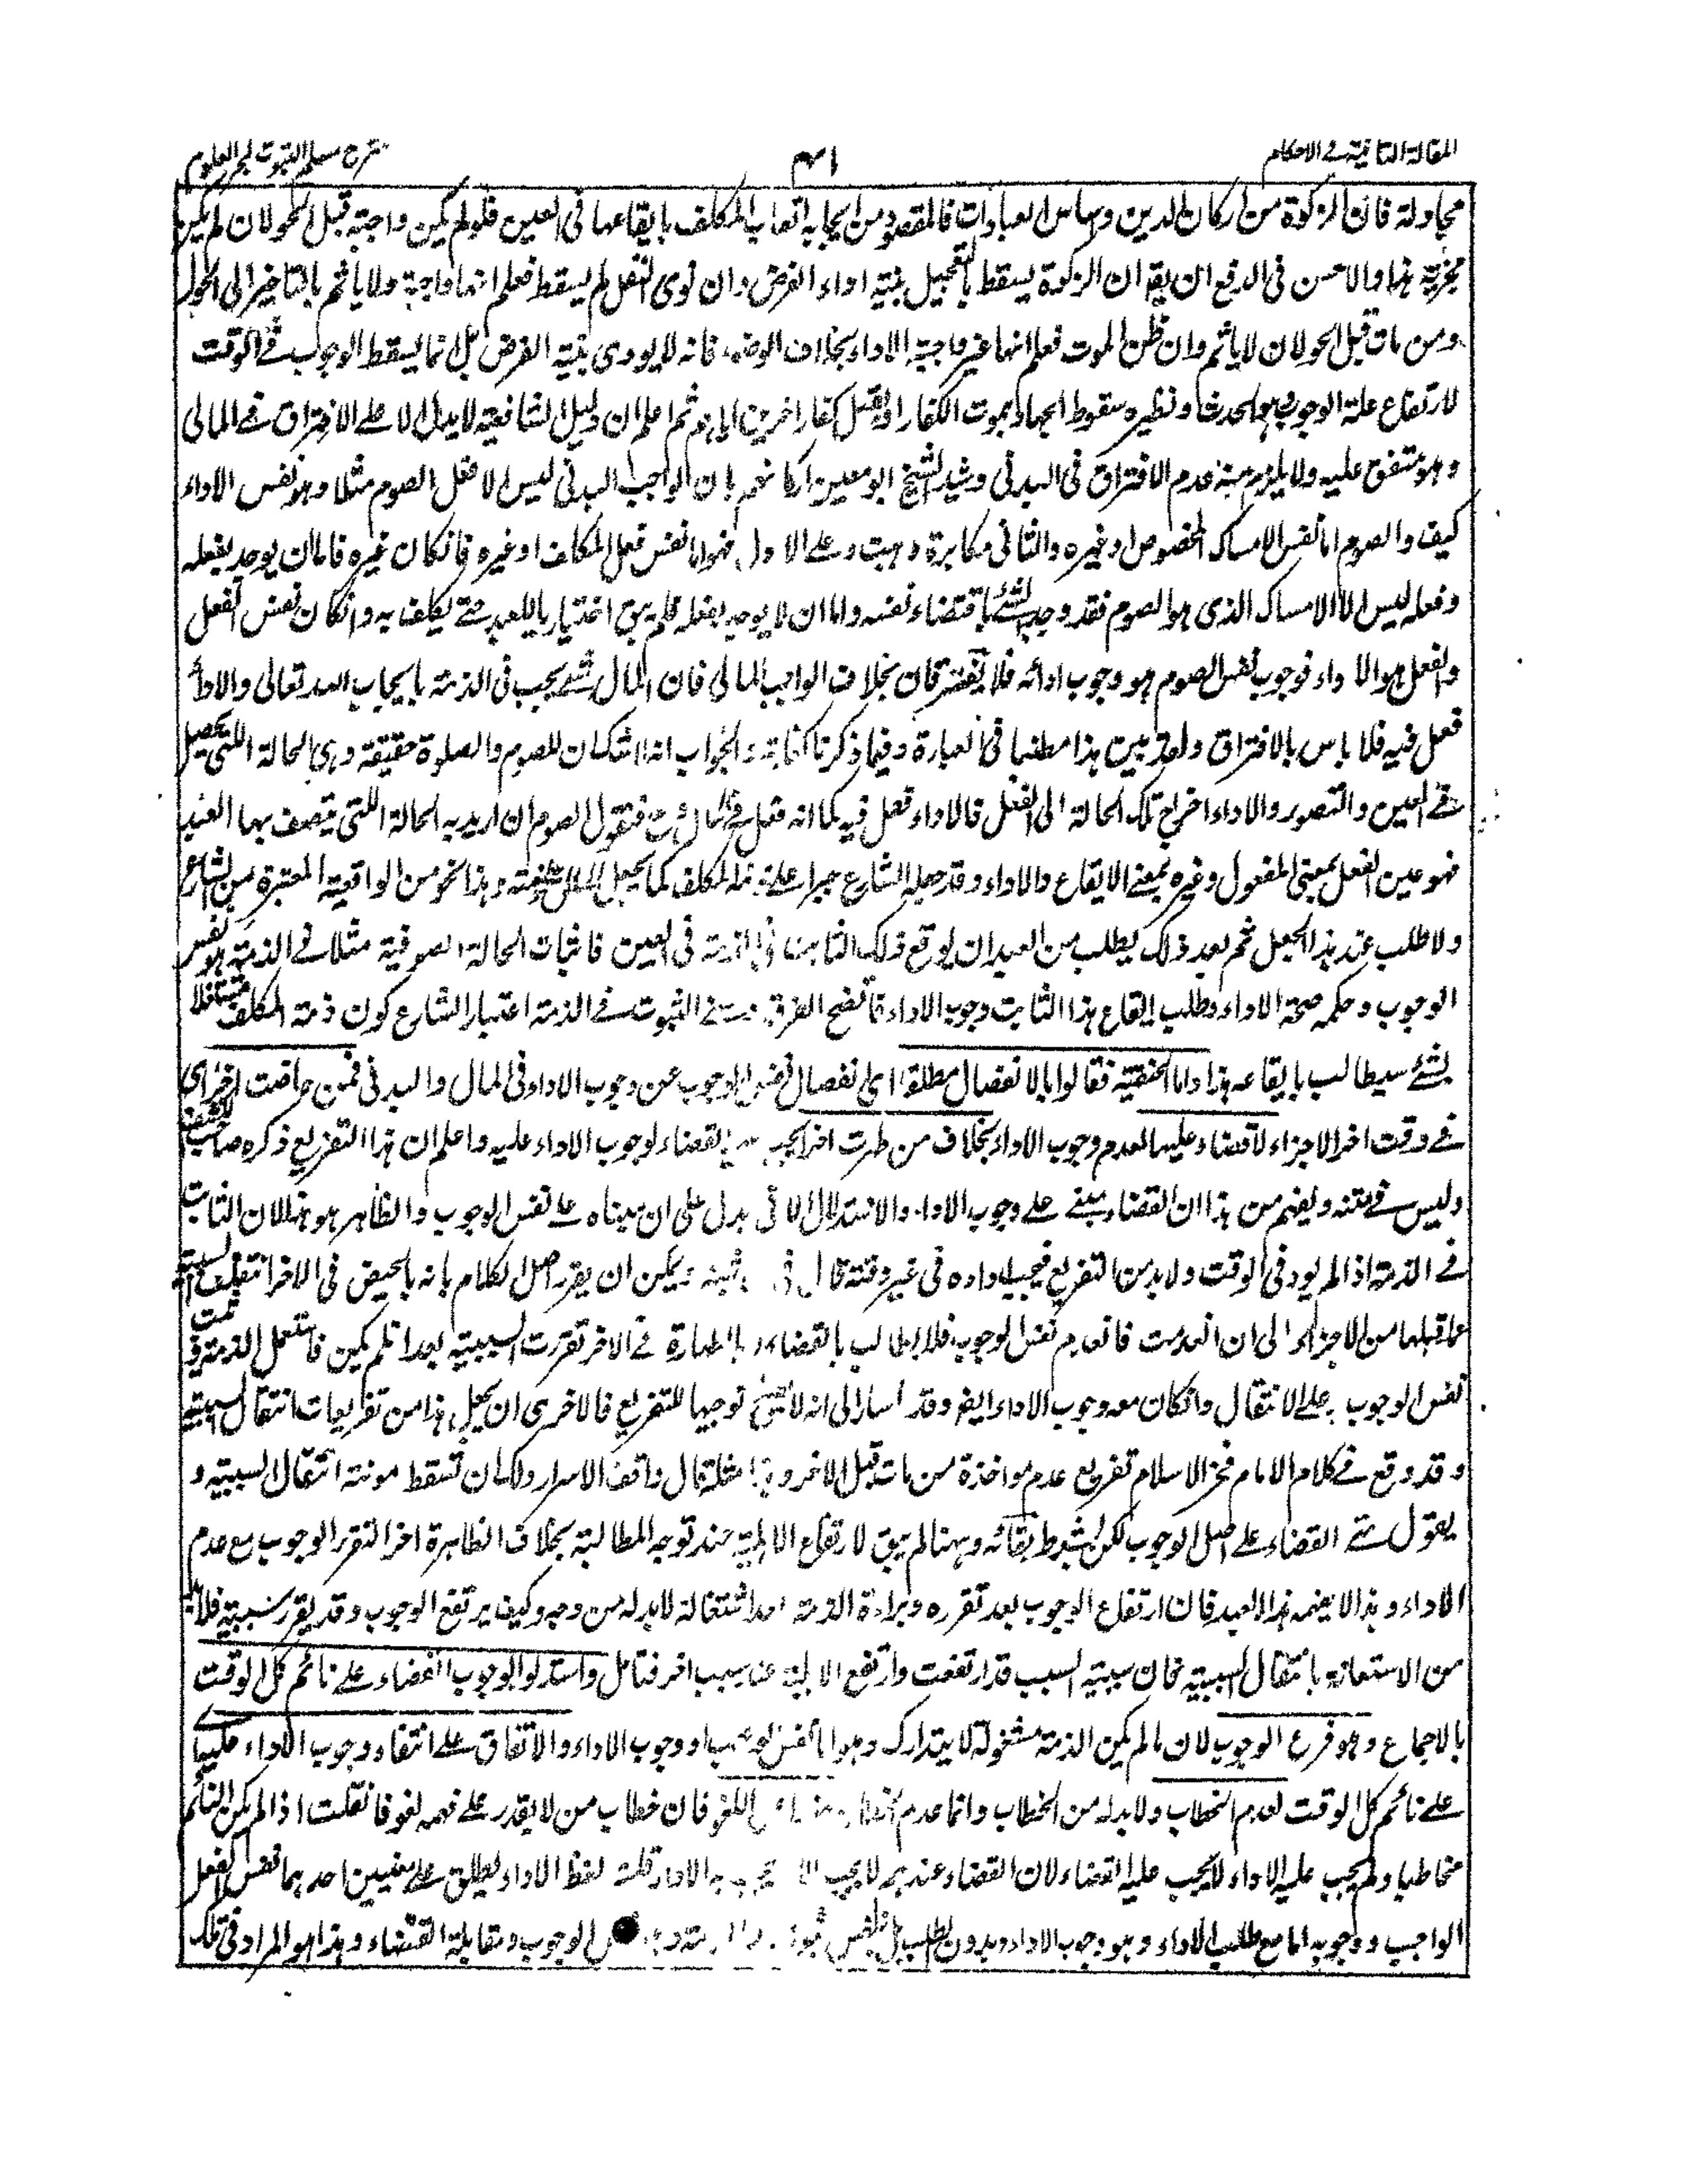 المقالة الثانية في الاحكام
٤١
شرح مسلم الثبوت لبحر العلوم
فان الزكوة من اركان الدين واساس العبادات فالمقصود من ايجابه اتعاب المكلف بايقاعها في العين فلو لم يكن واجبة قبل الحولان لم يكن
مجزية هذا والاحسن في الدفع ان يقه ان الزكوة يسقط بالتعجيل بنية اداء الفرض وان نوى النفل لم يسقط فعلم انها واجبة ولا ياثم بالتاخير الى الحول
ومن مات قبل الحولان لا ياثم وان ظن الموت فعلم انها غير واجبة الاداء بخلاف الوضوء فانه لا يودى بنية الفرض بل انما يسقط الوجوب في الوقت
لارتفاع علة الوجوب هو الحدث ونظيره سقوط الجهاد بموت الكفار او قتل كفار اخرين اياهم ثم اعلم ان دليل الشافعية لا يدل الا على الافتراق في المالي
وهو متفق عليه ولا يلزم منه عدم الافتراق في البدني وشيد الشيخ ابو معين اركانهم بان الواجب البدني ليس الا فعل الصوم مثلا وهو نفس الاداء
كيف والصوم اما نفس الامساك المخصوص او غيره والثاني مكابرة وبهت وعلى الاول فهو اما نفس فعل المكلف او غيره فانكان غيره فاما ان يوجد بفعله
وفعله ليس الا الامساك الذى هو الصوم فقد وجد الشئ باقتضاء نفسه واما ان لا يوجد بفعله فلم يبق اختيار باللعبد حتى يكلف به وانكان نفس الفعل
والفعل هو الاداء فوجوب نفس الصوم هو وجوب ادائه فلا يفترقان بخلاف الواجب المالي فان المال شئ يجب في الذمة بايجاب الله تعالى والاداء
فعل فيه فلا باس بالافتراق ولقد بين هذا مطنبا في العبارة وفيما ذكرنا كفاية والجواب انه لا شك ان للصوم والصلوة حقيقة وهي الحالة اللتى يحصل
في العين والتصور والاداء اخراج تلك الحالة الى الفعل فالاداء فعل فيه كما انه فعل في المال فنقول الصوم ان اريد به الحالة اللتى يتصف بها العبد
فهو عين الفعل بمعنى المفعول وغيره بمعنى الايقاع والاداء وقد جعله الشارع جبرا على ذمة المكلف كما يجعل المال على ذمته وهذا نحو من الواقعية المعتبرة من الشارع
ولا طلب عند هذا الجعل ثم بعد ذلك يطلب من العبد ان يوقع ذلك الثابت في الذمة في العين فاثبات الحالة الصوفية مثلا في الذمة هو نفس
الوجوب وحكمه صحة الاداء وطلب ايقاع هذا الثابت وجوب الاداء فاتضح الفرق ومعنى الثبوت في الذمة اعتبار الشارع كون ذمة المكلف مشتغلا
بشئ سيطالب بايقاعه هذا واما الحنفية فقالوا بالانفصال مطلقا اى انفصال نفس الوجوب عن وجوب الاداء في المال والبدني فمن حاضت اخرا اى
في وقت اخر الاجزاء لا قضاء عليها لعدم وجوب الاداء بخلاف من طهرت اخرا يجب القضاء لوجوب الاداء عليه واعلم ان هذا التفريع ذكره صاحب الكشف
وليس في متنه ويفهم من هذا ان القضاء يبنى على وجوب الاداء والاستدلال الاتى يدل على ان مبناه على نفس الوجوب والظاهر هو هذا لان الثابت
في الذمة اذا لم يود في الوقت ولا بد من التفريع فيجب اداده في غير وقته قال في ويمكن ان يقرر اصل الكلام بانه بالحيض في الاخر انتقلت السببية
عما قبلها من الاجزاء الى ان انعدمت فانعدم نفس الوجوب فلا يطالب بالقضاء وبالطهارة في الاخر تقررت السببية بعدا تلم يكن فاشتغل الذمة وتمت
نفس الوجوب على الانتقال وانكان معه وجوب الاداء ايضا وقد اشار الى انه لا توجيها للتفريع فالاحرى ان يجعل هذا من تفريعات انتقال السببية
وقد وقع في كلام الامام فخر الاسلام تفريع عدم مواخذة من مات قبل الاخر مثلا قال واقف الاسرار ولك ان تسقط مونته انتقال السببية و
يقول القضاء على اصل الوجوب لكن بشرط بقائه وههنا لم يبق لارتفاع الاهلية عند توجه المطالبة بخلاف الطاهرة اخرا لتقرر الوجوب مع عدم
الاداء وهذا لا يفهمه هذا العبد فان ارتفاع الوجوب بعد تقرره وبراءة الذمة بعد اشتغاله لا بد له من وجه وكيف يرتفع الوجوب وقد يقرر سببيته فلا بد
من الاستعانة بانتقال السببية فان سببية السبب قد ارتفعت وارتفع الاهلية عنا سبب اخر فتامل واستدلوا لوجوب القضاء على نائم كل الوقت
بالاجماع وهو فرع الوجوب لان ما لم يكن الذمة مشغولة لا يتدارك وهو اما نفس الوجوب او وجوب الاداء والاتفاق على انتفاء وجوب الاداء
على نائم كل الوقت لعدم الخطاب ولا بد له من الخطاب وانما عدم اللغو فان خطاب من لا يقدر على فهمه لغو فانقلت اذا لم يكن النائم
مخاطبا ولم يجب عليه الاداء لا يجب عليه القضاء لان القضاء عندهم لا يجب الا الاداء قلت لفظ الاداء يطلق على معنيين احدهما نفس الفعل
الواجب ووجوبه اما مع طلب الاداء وهو وجوب الاداء وبدون الطلب بل بنفس الوجوب ومقابلة القضاء وهذا هو المراد في تلك